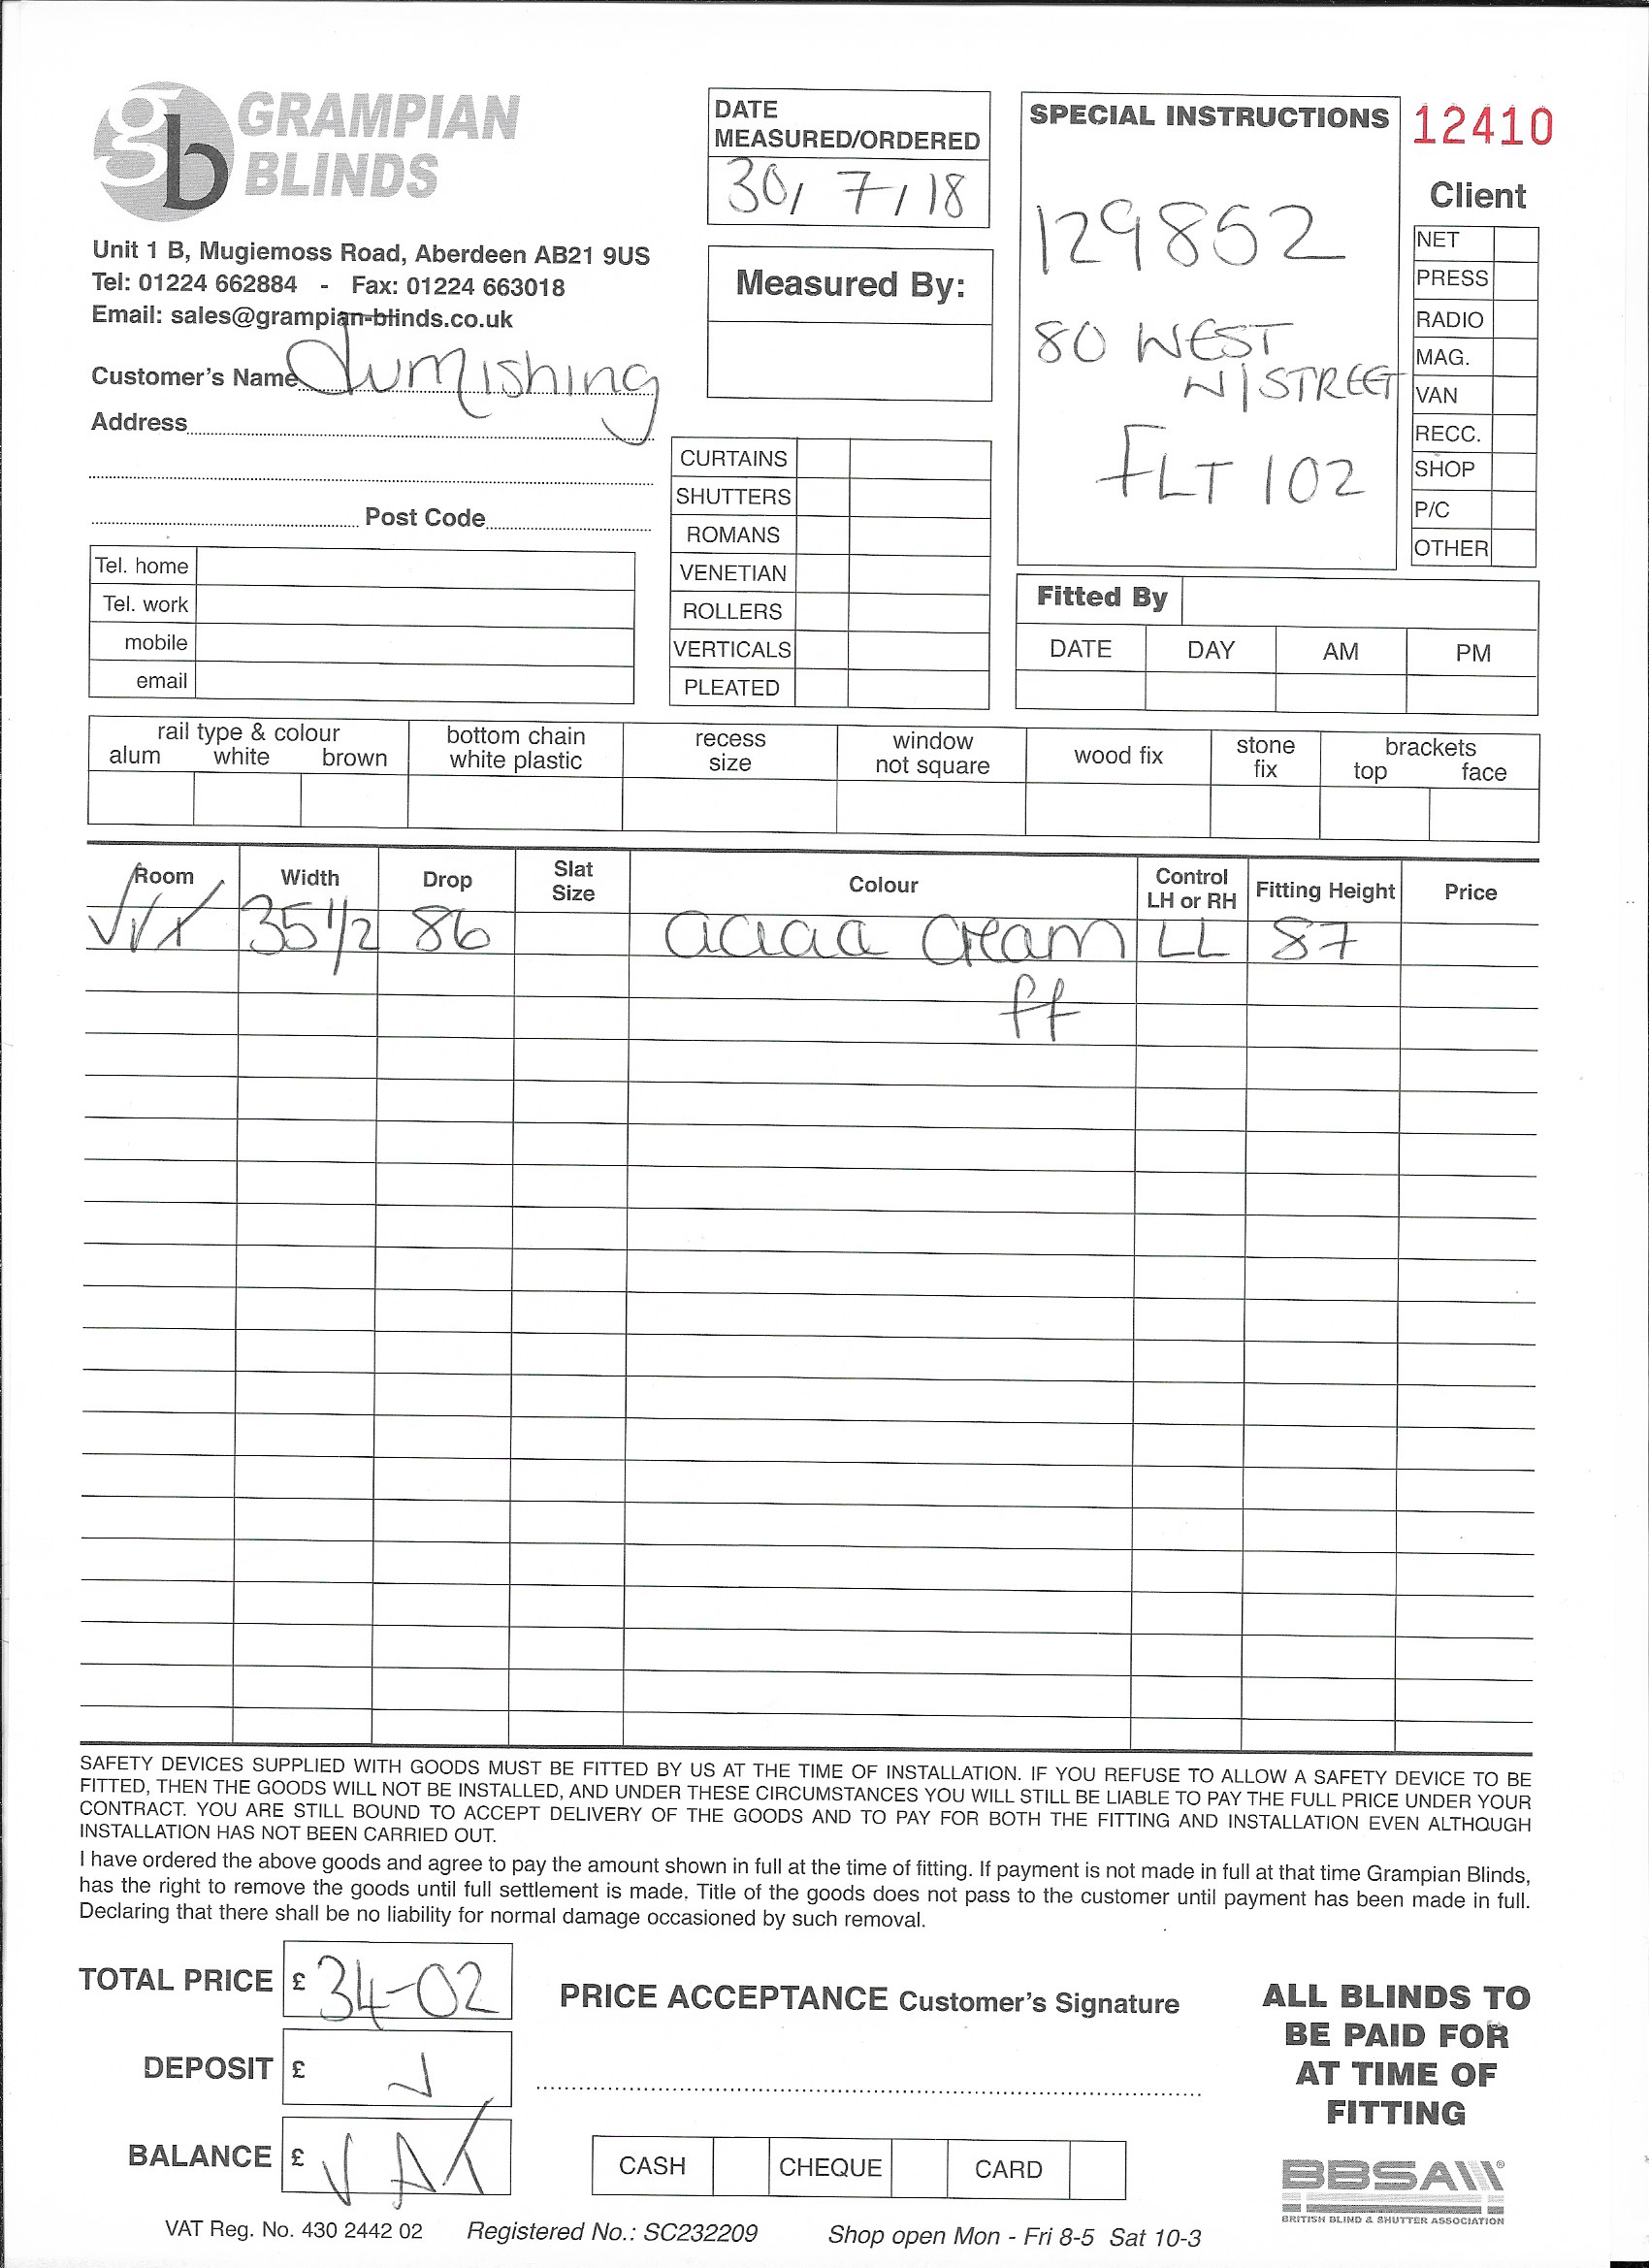 gb GRAMPIAN
BLINDS
Unit 1 B, Mugiemoss Road, Aberdeen AB21 9US
Tel: 01224 662884 - Fax: 01224 663018
Email: sales@grampian-blinds.co.uk
Customer's Name
Address
Post Code
Tel. home
Tel. work
mobile
email
DATE
MEASURED/ORDERED
30/ 7/18
Measured By:
CURTAINS
SHUTTERS
ROMANS
VENETIAN
ROLLERS
VERTICALS
PLEATED
SPECIAL INSTRUCTIONS
129852
80 WEST
N/STREET
FLT 102
12410
Client
NET
PRESS
RADIO
MAG.
VAN
RECC.
SHOP
P/C
OTHER
Fitted By
DATE DAY AM PM
rail type & colour
alum white brown
bottom chain
white plastic
recess
size
window
not square
wood fix
stone
fix
brackets
top face
Room Width Drop Slat Size Colour Control LH or RH Fitting Height Price
35 1/2 86 Cream LL 87
ff
SAFETY DEVICES SUPPLIED WITH GOODS MUST BE FITTED BY US AT THE TIME OF INSTALLATION. IF YOU REFUSE TO ALLOW A SAFETY DEVICE TO BE
FITTED, THEN THE GOODS WILL NOT BE INSTALLED, AND UNDER THESE CIRCUMSTANCES YOU WILL STILL BE LIABLE TO PAY THE FULL PRICE UNDER YOUR
CONTRACT. YOU ARE STILL BOUND TO ACCEPT DELIVERY OF THE GOODS AND TO PAY FOR BOTH THE FITTING AND INSTALLATION EVEN ALTHOUGH
INSTALLATION HAS NOT BEEN CARRIED OUT.
I have ordered the above goods and agree to pay the amount shown in full at the time of fitting. If payment is not made in full at that time Grampian Blinds,
has the right to remove the goods until full settlement is made. Title of the goods does not pass to the customer until payment has been made in full.
Declaring that there shall be no liability for normal damage occasioned by such removal.
TOTAL PRICE £ 34-02
DEPOSIT £
BALANCE £
PRICE ACCEPTANCE Customer's Signature
CASH CHEQUE CARD
ALL BLINDS TO
BE PAID FOR
AT TIME OF
FITTING
BBSA
BRITISH BLIND & SHUTTER ASSOCIATION
VAT Reg. No. 430 2442 02 Registered No.: SC232209 Shop open Mon - Fri 8-5 Sat 10-3